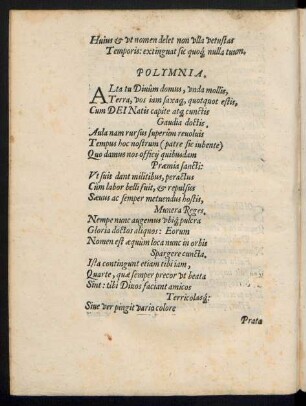 Huius & vt nomen delet non vlla vetustas
Temporis: extinguat sic quoq; nulla tuum.
POLYMNIA.
ALta tu Diuûm domus, vnda mollis,
Terra, vos iam saxaq; quotquot estis,
Cum DEI Natis capite atq; cunctis
Gaudia doctis.
Aula nam rursus superûm reuoluit
Tempus hoc nostrum (patre sic iubente)
Quo damus nos officij quibusdam
Præmia sancti:
Vt suis dant militibus, peractus
Cùm labor belli fuit, & repulsus
Sæuus ac semper metuendus hostis,
Munera Reges.
Nempe nunc augemus vbiq; pulcra
Gloria doctos aliquos: Eorum
Nomen est æquum loca nunc in orbis
Spargere cuncta.
Ista contingunt etiam tibi iam,
Quarte, quæ semper precor vt beata
Sint: tibi Diuos faciant amicos
Terricolasq;:
Siue ver pingit vario colore
Prata